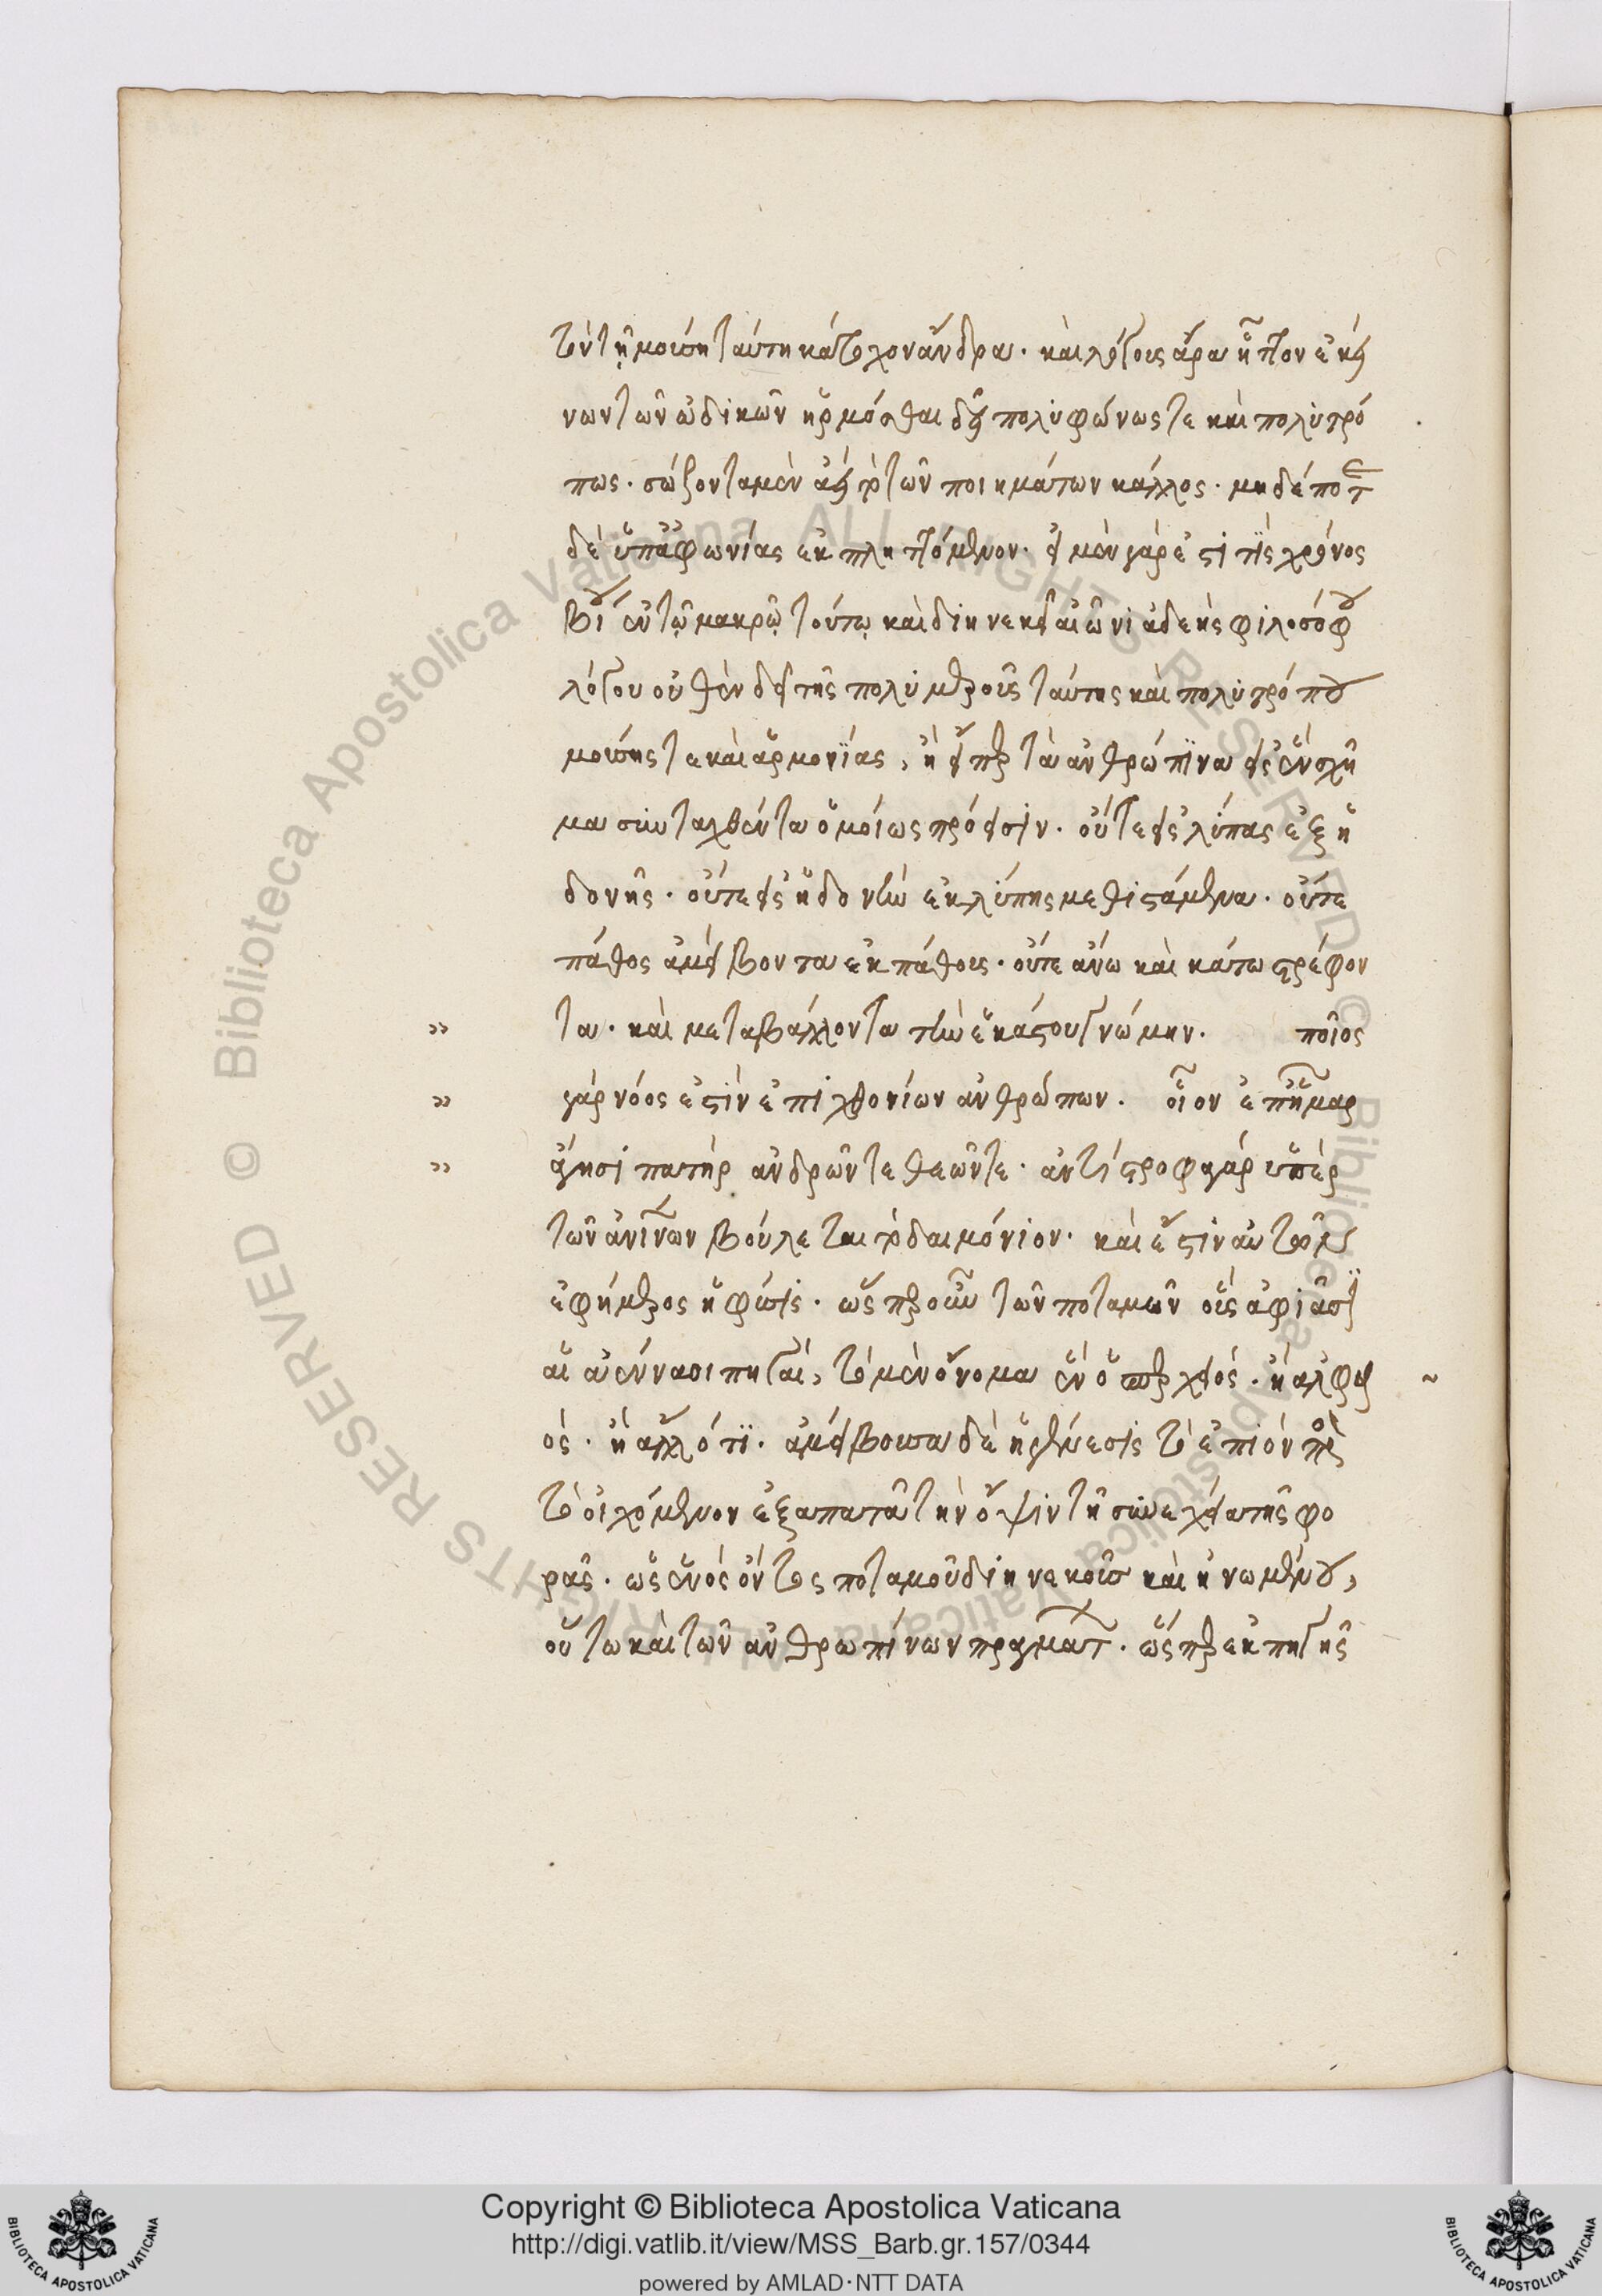 τὸν τῇ μούσῃ ταύτῃ κάτοχον ἄνδρα. καὶ λόγοις ἄρα ἧττον ἐκεί
νων τῶν ᾠδικῶν ἡρμόσθαι δεῖ πολυφώνως τε καὶ πολυτρό
πως. σώζοντα μὲν ἀεὶ τὸ τῶν ποιημάτων κάλλος. μηδέποτε
δὲ ὑπ' ἀφωνίας ἐκπληττόμενον. εἰ μὲν γάρ ἐστί τις χρόνος
βίου ἐν τῷ μακρῷ τούτῳ καὶ διηνεκεῖ αἰῶνι ἀδεὴς φιλοσόφου
λόγου οὐθὲν δεῖ τῆς πολυμεροῦς ταύτης καὶ πολυτρόπου
μούσης τε καὶ ἁρμονίας, ἢ εἴπερ τὰ ἀνθρώπινα εἰς ἓν σχῆ
μα συνταχθέντα ὁμοίως πρόεισιν. οὔτε εἰς λύπας ἐξ ἡ
δονῆς. οὔτε εἰς ἡδονὴν ἐκ λύπης μεθιστάμενα. οὔτε
πάθος ἀμείβοντα ἐκ πάθους. οὔτε ἄνω καὶ κάτω στρέφον
» τα. καὶ μεταβάλλοντα τὴν ἑκάστου γνώμην. ποῖος
» γὰρ νόος ἐστὶν ἐπιχθονίων ἀνθρώπων. οἷον ἐπ' ἦμαρ
» ἄγησι πατὴρ ἀνδρῶν τε θεῶν τε. ἀντίστροφα γὰρ ὑπὲρ
τῶν ἀνίνων βούλεται τὸ δαιμόνιον. καὶ ἔστιν αὐτῶν
ἐφήμερος ἡ φύσις. ὥσπερ οὖν τῶν ποταμῶν οὓς ἀφιᾶσι
αἱ ἀένναοι πηγαί, τὸ μὲν ὄνομα ἓν ὁ σπερχειός. ἢ ἀλφει ~
ός. ἢ ἄλλό τι. ἀμείβουσα δὲ ἡ γένεσις τὸ ἐπιὸν πρὸς
τὸ οἰχόμενον ἐξαπατᾷ τὴν ὄψιν τῇ συνεχείᾳ τῆς φο
ρᾶς. ὡς ἑνὸς ὄντος ποταμοῦ διηνεκοῦς καὶ ἡνωμένου,
οὕτω καὶ τῶν ἀνθρωπίνων πραγμάτων. ὥσπερ ἐκ πηγῆς
Copyright © Biblioteca Apostolica Vaticana
http://digi.vatlib.it/view/MSS_Barb.gr.157/0344
powered by AMLAD·NTT DATA
© Biblioteca Apostolica Vaticana ALL RIGHTS RESERVED
© Biblioteca Apostolica Vaticana ALL RIGHTS RESERVED
BIBLIOTECA APOSTOLICA VATICANA
BIBLIOTECA APOSTOLICA VATICANA